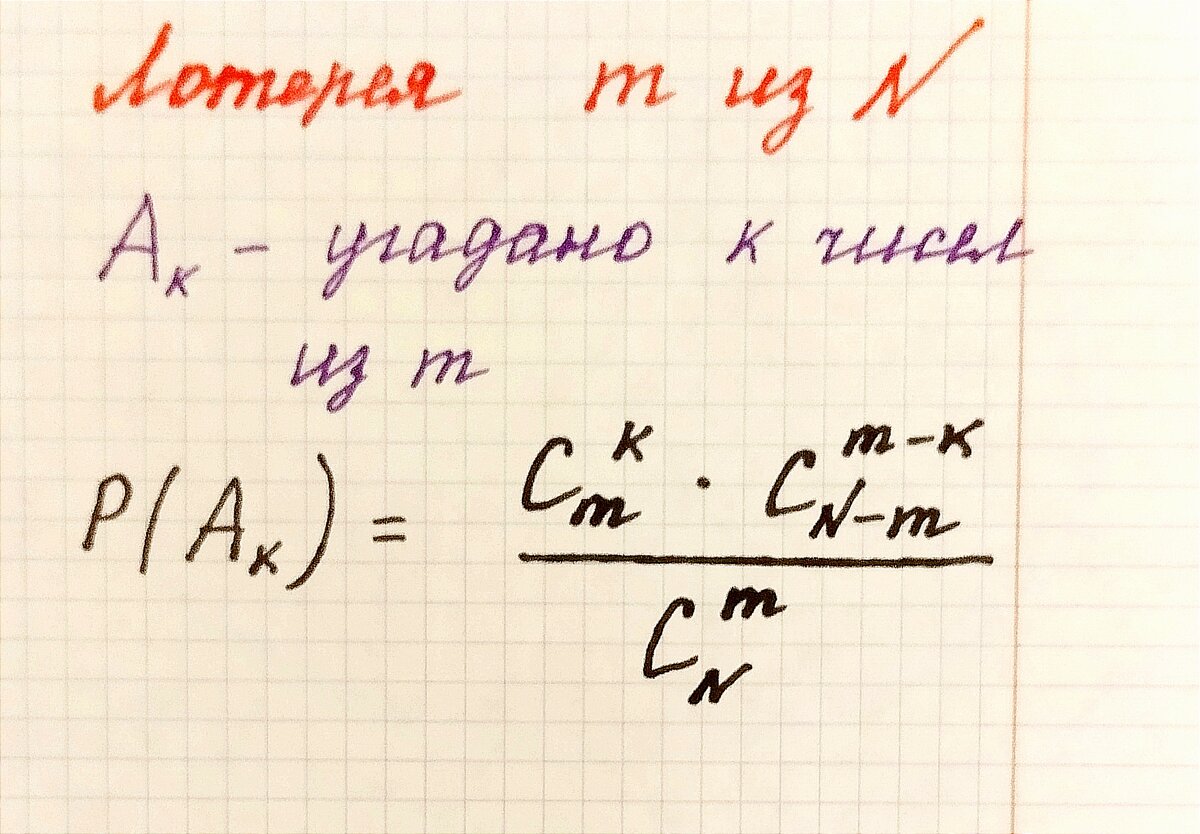 Лотерея m из N
Aₖ - угадано к чисел
из m
P(Aₖ) = (Cₘᵏ · C_{N-m}^{m-к}) / C_N^m